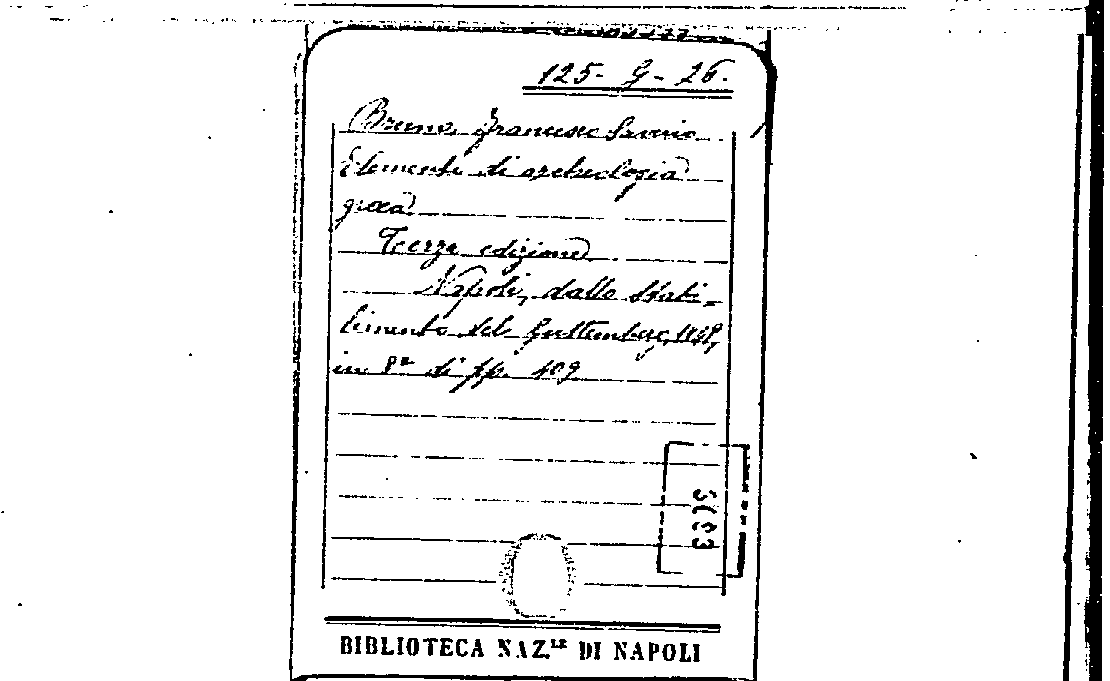 125- G- 26.
Bruno, Francesco Saverio
Elementi di archeologia
greca.
Terza edizione
Napoli, dallo Stabi-
limento del Guttemberg,
in 8° di pp. 109
BIBLIOTECA NAZ.LE DI NAPOLI